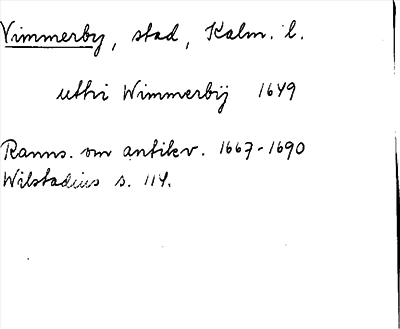 Vimmerby, stad, Kalm. l.
uthi Wimmerbÿ 1649
Ranns. om antikv. 1667-1690
Wilstadius s. 114.